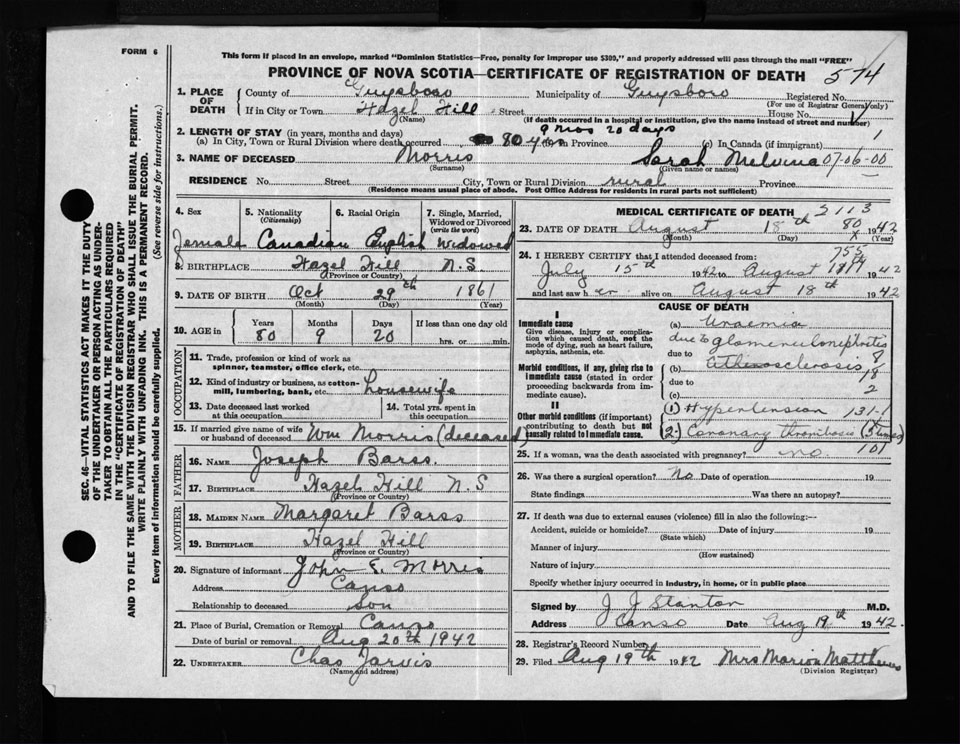 FORM 6
This form if placed in an envelope, marked "Dominion Statistics—Free, penalty for improper use $300," and properly addressed will pass through the mail "FREE"
PROVINCE OF NOVA SCOTIA—CERTIFICATE OF REGISTRATION OF DEATH 574
1. PLACE OF DEATH County of Guysboro Municipality of Guysboro Registered No.
(For use of Registrar General only)
If in City or Town Hazel Hill Street House No.
(Name) (If death occurred in a hospital or institution, give the name instead of street and number)
2. LENGTH OF STAY (in years, months and days) 9 mos 20 days
(a) In City, Town or Rural Division where death occurred 80 yrs (b) In Province (c) In Canada (if immigrant) 1
3. NAME OF DECEASED Morris Sarah Melvina 07-06-00
(Surname) (Given name or names)
RESIDENCE No. Street City, Town or Rural Division rural Province
(Residence means usual place of abode. Post Office Address for residents in rural parts not sufficient)
4. Sex 5. Nationality (Citizenship) 6. Racial Origin 7. Single, Married, Widowed or Divorced (write the word)
Female Canadian English Widowed
8. BIRTHPLACE Hazel Hill N.S.
(Province or Country)
9. DATE OF BIRTH Oct 29th 1861
(Month) (Day) (Year)
10. AGE in Years Months Days If less than one day old
80 9 20 hrs. or min.
OCCUPATION
11. Trade, profession or kind of work as spinner, teamster, office clerk, etc.
12. Kind of industry or business, as cotton-mill, lumbering, bank, etc. Housewife
13. Date deceased last worked at this occupation 14. Total yrs. spent in this occupation
15. If married give name of wife or husband of deceased Wm Morris (deceased)
FATHER
16. Name Joseph Barss.
17. Birthplace Hazel Hill N.S
(Province or Country)
MOTHER
18. Maiden Name Margaret Barss
19. Birthplace Hazel Hill
(Province or Country)
20. Signature of informant John E. Morris
Address Canso
Relationship to deceased Son
21. Place of Burial, Cremation or Removal Canso
Date of burial or removal Aug 20th 1942
22. Undertaker Chas Jarvis
(Name and address)
MEDICAL CERTIFICATE OF DEATH 2113
23. DATE OF DEATH August 18th 80 1942
(Month) (Day) (Year)
24. I HEREBY CERTIFY that I attended deceased from: 755
July 15th 1942 to August 1942
and last saw her alive on August 18th 1942
CAUSE OF DEATH
I
Immediate cause
Give disease, injury or complication which caused death, not the mode of dying, such as heart failure, asphyxia, asthenia, etc.
(a) Uraemia
due to glomerulonephritis
Morbid conditions, if any, giving rise to immediate cause (stated in order proceeding backwards from immediate cause).
due to 8
(b) atherosclerosis 18
due to 2
(c)
II
Other morbid conditions (if important) contributing to death but not causally related to immediate cause.
(1) Hypertension 131-1
(2) Coronary thrombosis
25. If a woman, was the death associated with pregnancy? no. 101
26. Was there a surgical operation? No Date of operation 19
State findings Was there an autopsy?
27. If death was due to external causes (violence) fill in also the following:—
Accident, suicide or homicide? Date of injury 19
(State which)
Manner of injury
(How sustained)
Nature of injury
Specify whether injury occurred in industry, in home, or in public place
Signed by J J Stanton M.D.
Address Canso Date Aug 19th 1942.
28. Registrar's Record Number
29. Filed Aug 19th 1942 Mrs Marion Matthews
(Division Registrar)
SEC. 46—VITAL STATISTICS ACT MAKES IT THE DUTY
OF THE UNDERTAKER OR PERSON ACTING AS UNDER-
TAKER TO OBTAIN ALL THE PARTICULARS REQUIRED
IN THE "CERTIFICATE OF REGISTRATION OF DEATH"
AND TO FILE THE SAME WITH THE DIVISION REGISTRAR WHO SHALL ISSUE THE BURIAL PERMIT.
WRITE PLAINLY WITH UNFADING INK. THIS IS A PERMANENT RECORD.
Every item of information should be carefully supplied. (See reverse side for instructions.)